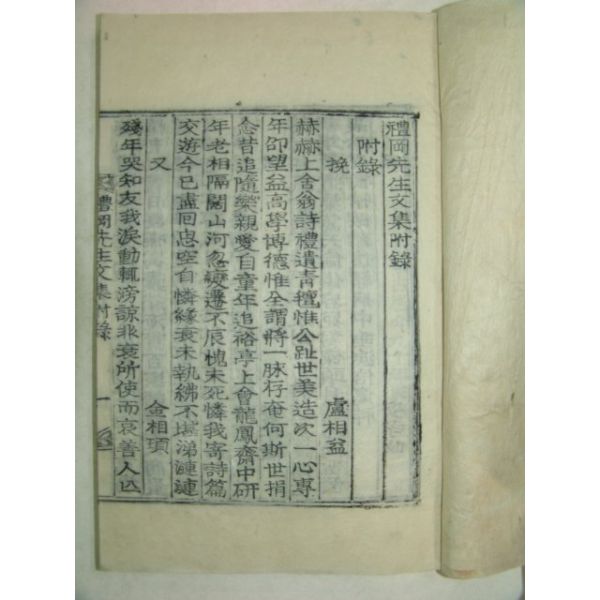 禮岡先生文集附錄
附錄
挽 盧相益
赫赫上舍翁詩禮遺靑氊惟公趾世美造次一心專
年卲望益高學博德惟全謂將一脉存奄何斯世捐
念昔追隨樂親愛自童年追裕亭上會龍鳳齋中硏
年老相隔闊山河忽變遷不辰愧未死憐我寄詩篇
交遊今已盡回思空自憐緣衰未執紼不堪涕漣漣
又 金相頊
殘年哭知友我淚動輒滂諒非衰所使而哀善人亾
禮岡先生文集附錄 一